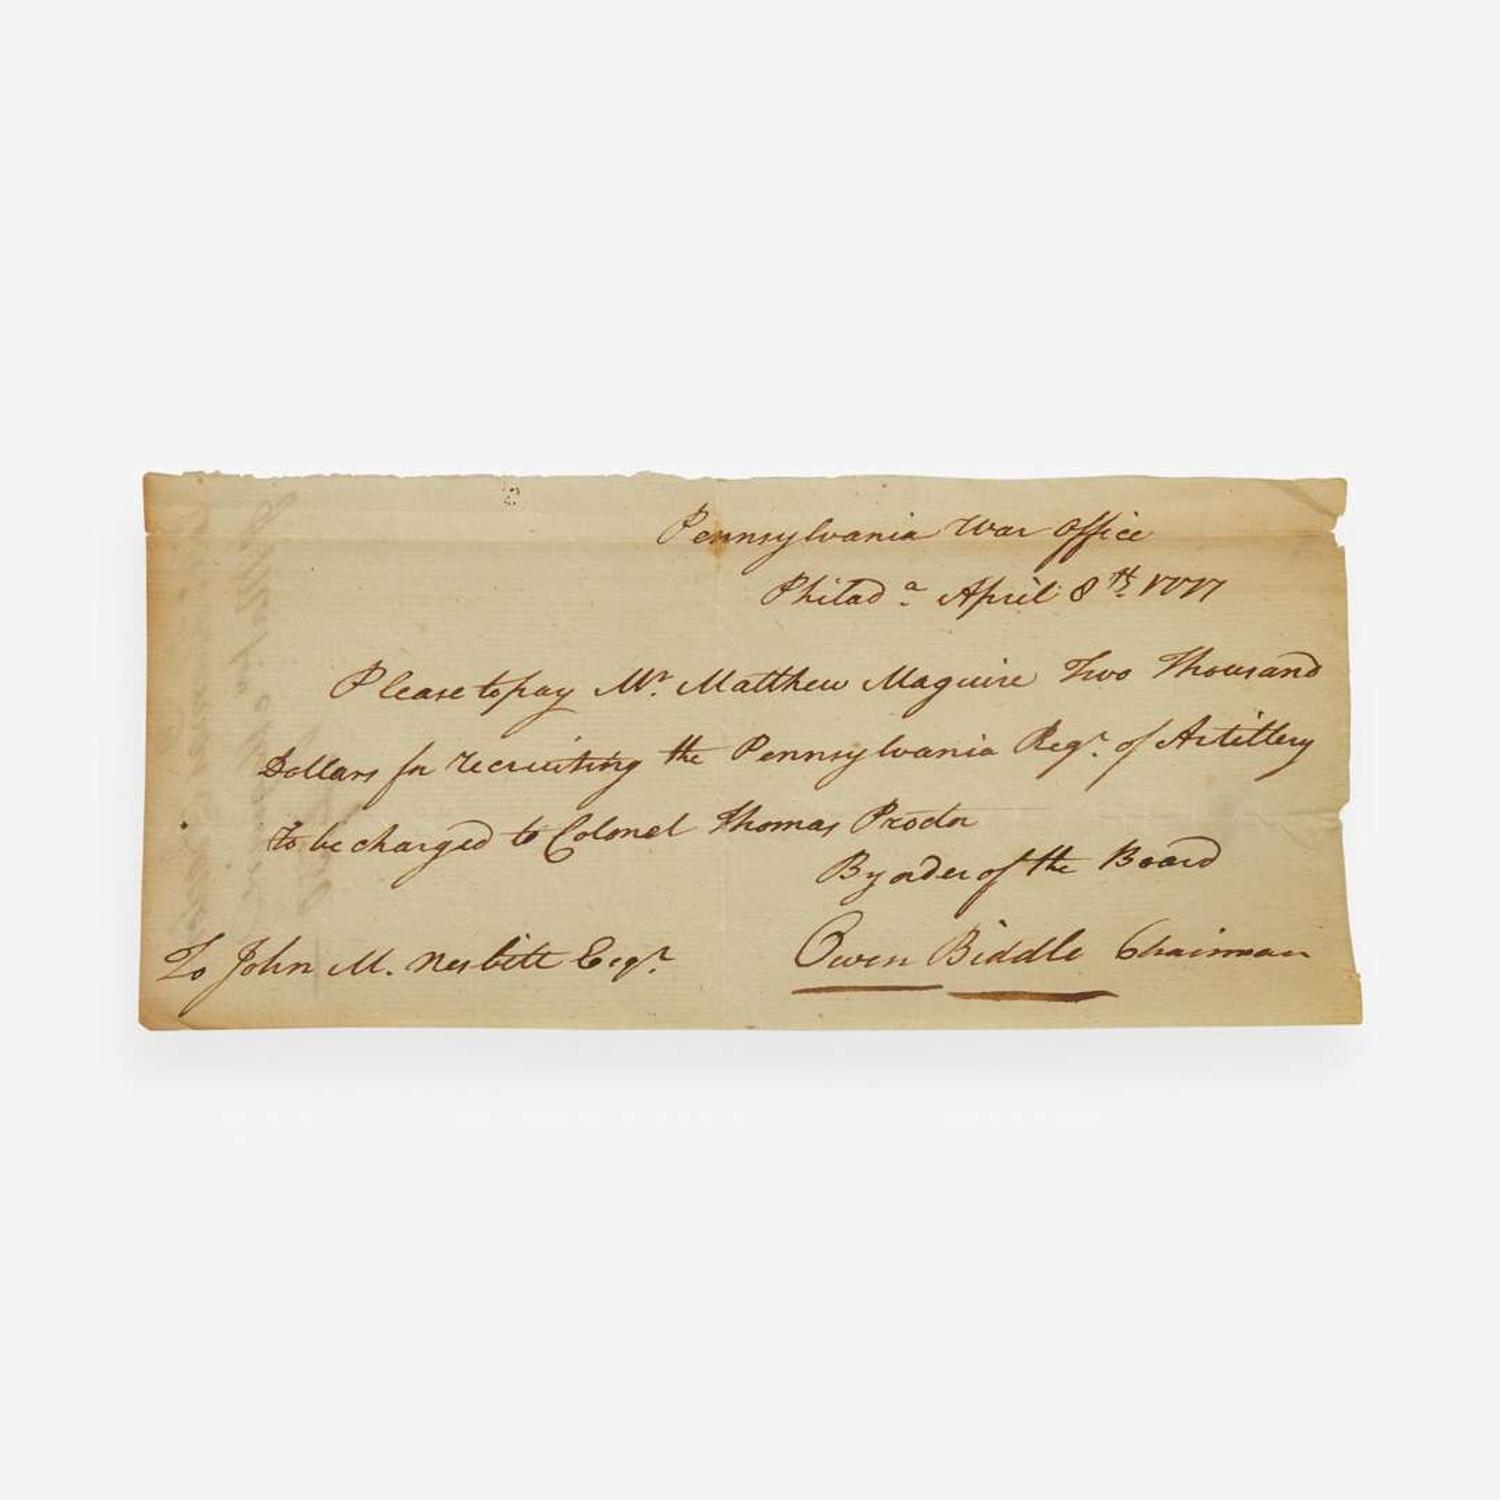 Pennsylvania War Office
Philada. April 8th. 1777
Please to pay Mr. Matthew Maguire Two Thousand
Dollars for recruiting the Pennsylvania Regt. of Artillery
to be charged to Colonel Thomas Proctor
By order of the Board
To John M. Nesbitt Esqr. Owen Biddle Chairman